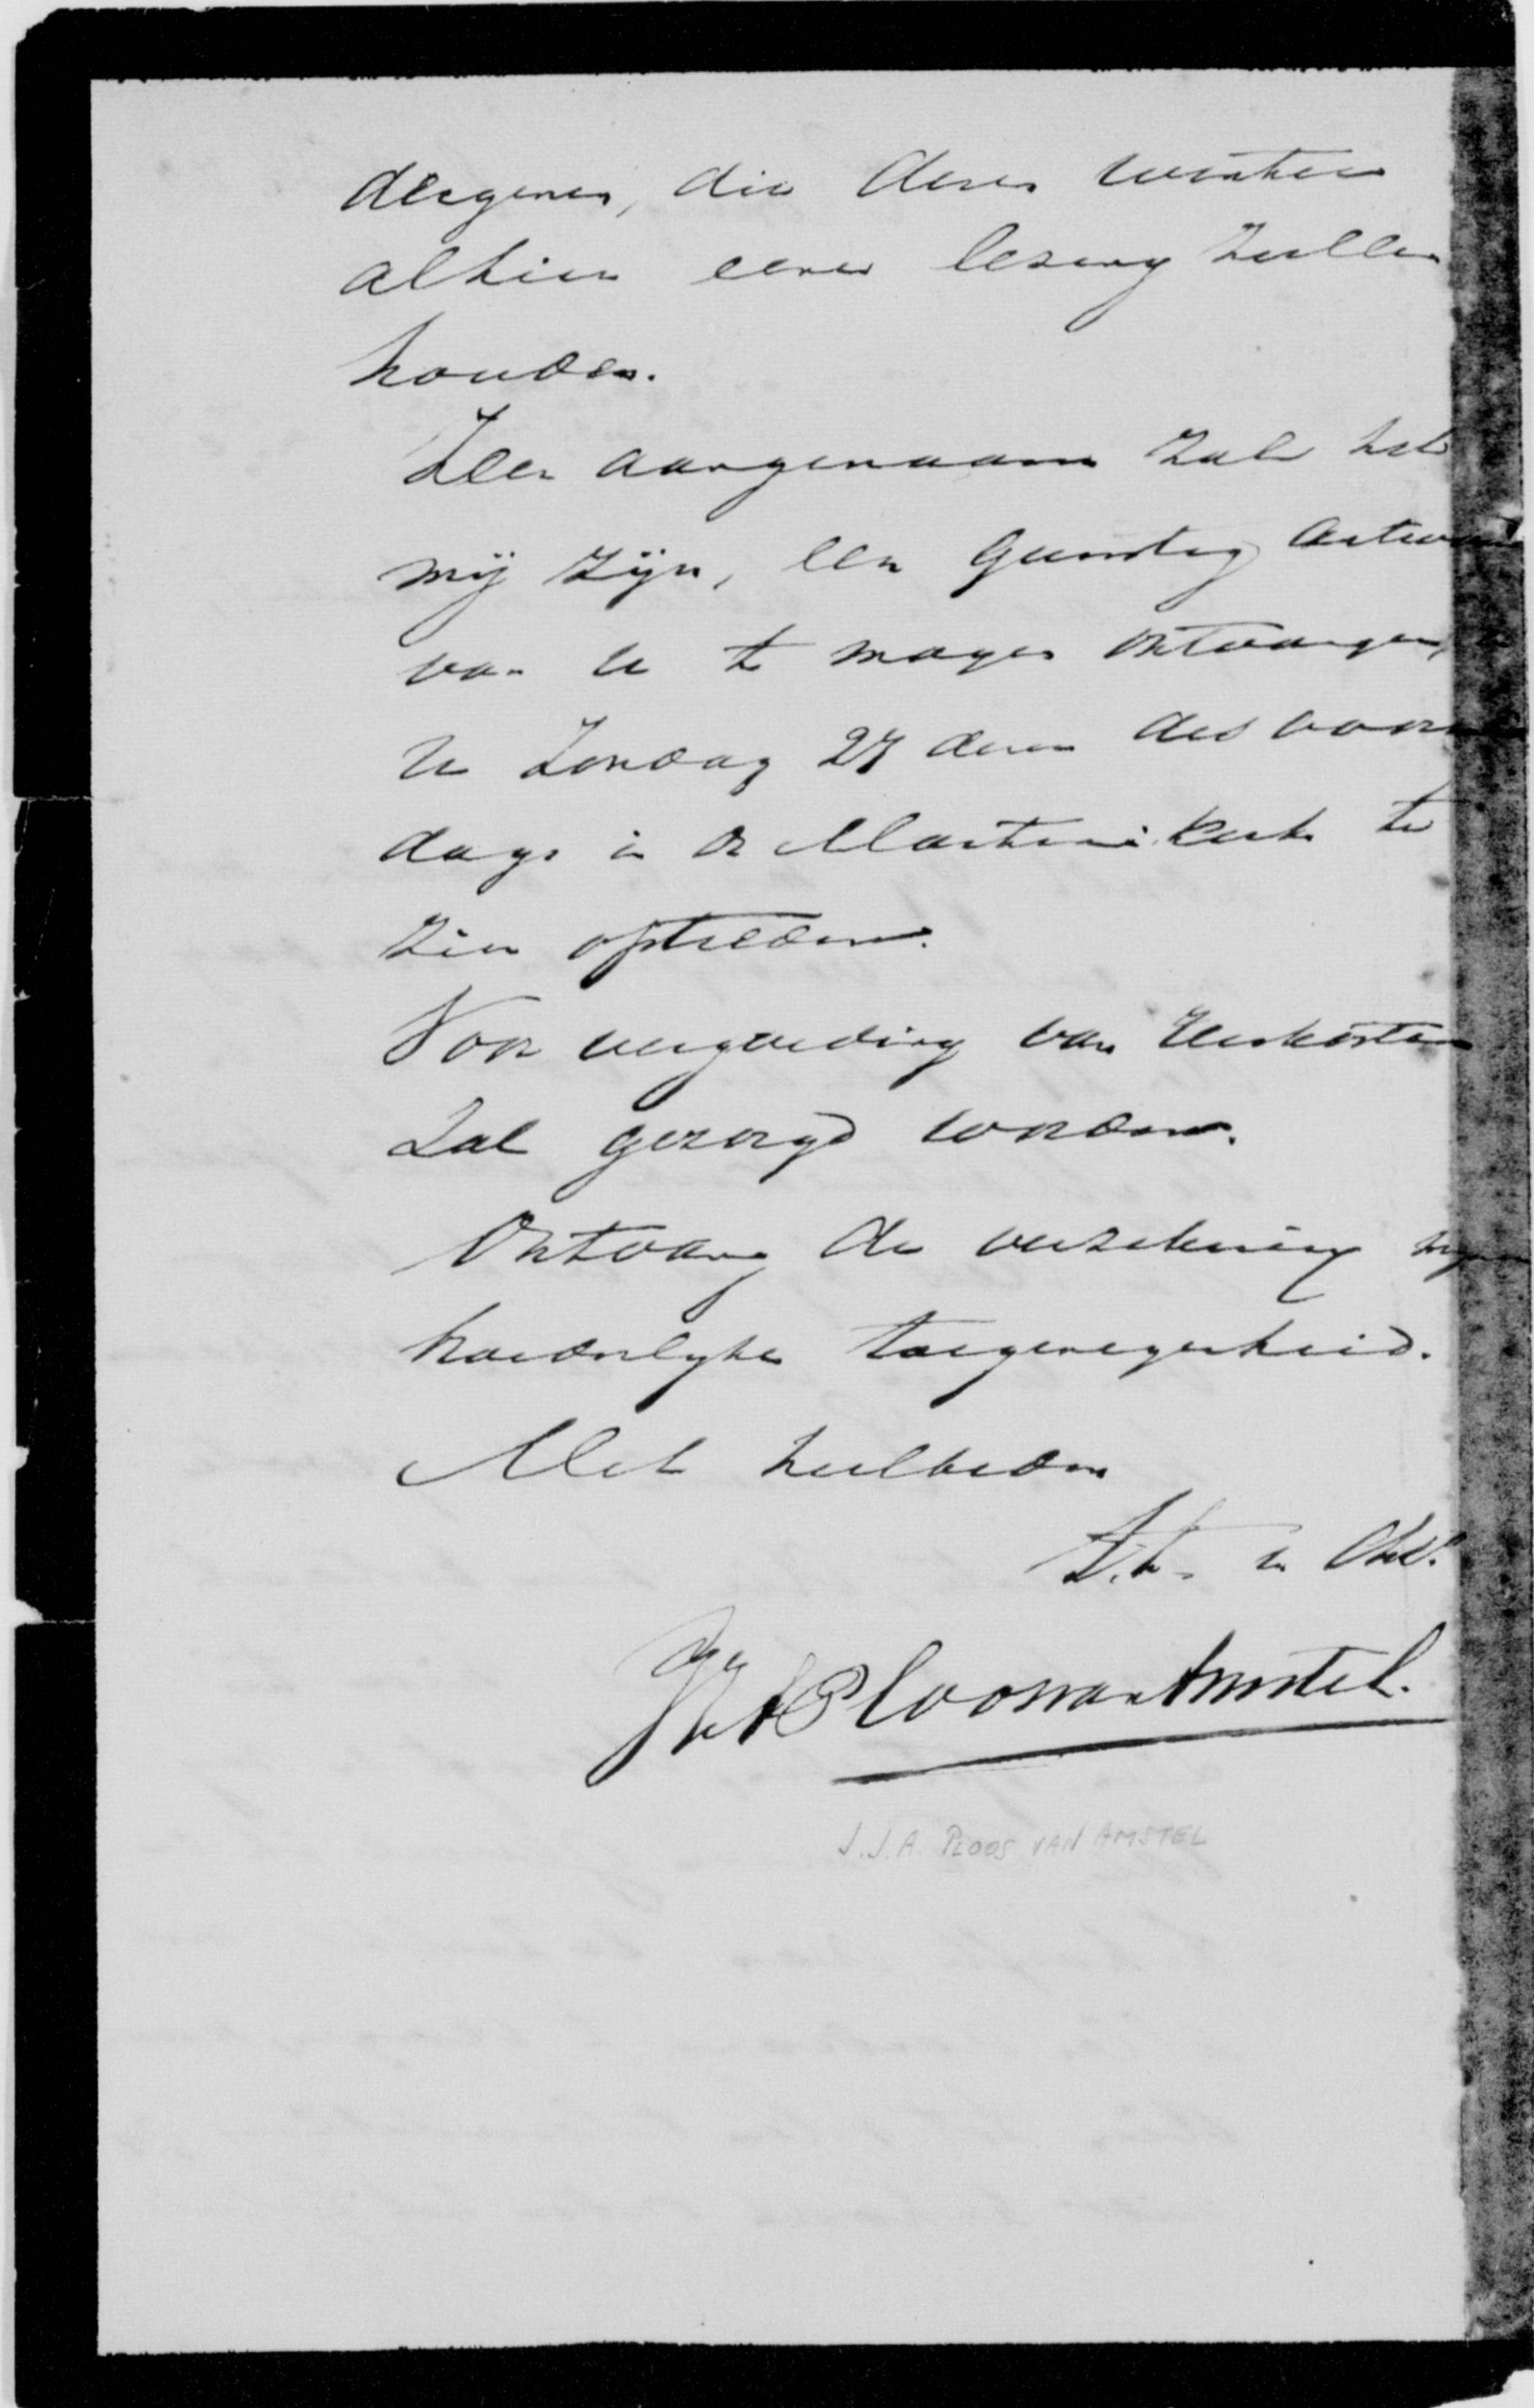 dergenen, die dezen winter
alhier eene lezing zullen
houden.
Zeer aangenaam zal het
mij zijn, een gunstig antwoord
van U te mogen ontvangen,
U Zondag 27 dezer des voormid
dags in de Martinikerk te
zien optreden.
Voor vergoeding van reiskosten
zal gezorgd worden.
Ontvang de verzekering mijner
broederlyke toegenegenheid.
Met heilbeden
t.t. in Chr.
JJA Ploos van Amstel.
J.J.A. PLOOS VAN AMSTEL